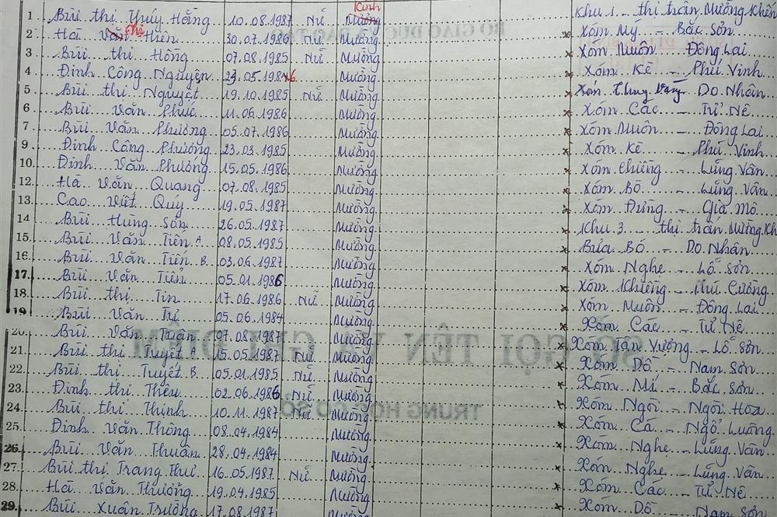 1. Bùi thị Thúy Hằng 10.08.1987 Nữ Kinh Mường Khu 1. thị trấn Mường Khến
2. Hà Văn Thị Hiền 30.07.1986 Nữ Mường Xóm Mý - Bắc Sơn
3. Bùi thị Hồng 07.08.1985 Nữ Mường Xóm Muôn Đông Lai
4. Đinh Công Nguyện 23.05.1986 Mường Xóm Kè - Phú Vinh
5. Bùi thị Nguyệt 19.10.1985 Nữ Mường Xóm - Do Nhân
6. Bùi Văn Phúc 11.06.1986 Mường Xóm Các - Tử Nê
7. Bùi Văn Phường 05.07.1986 Mường Xóm Muôn - Đông Lai
9. Đinh Công Phương 23.03.1985 Mường Xóm Kè Phú Vinh
10. Đinh Văn Phương 15.05.1986 Mường Xóm Chiềng - Lũng Vân
12. Hà Văn Quang 07.08.1985 Mường Xóm Bò - Lũng Vân
13. Cao Việt Quý 19.05.1987 Mường Xóm Đừng - Gia Mô
14. Bùi Hùng Sơn 26.05.1987 Mường Khu 3. thị trấn Mường Kh
15. Bùi Văn Tiến A. 08.05.1985 Mường Búa Bó - Do Nhân
16. Bùi Văn Tiến B. 03.06.1987 Mường Xóm Nghẹ - Lỗ Sơn
17. Bùi Văn Tiến 05.01.1986 Mường Xóm Khiềng Cường
18. Bùi thị Tin 17.06.1986 Nữ Mường Xóm Muôn - Đông Lai
19. Bùi Văn Tú 05.06.1984 Mường Xóm Các - Tử Nê
20. Bùi Văn 07.08.1987 Mường Xóm Tân Vượng - Lỗ Sơn
21. Bùi thị Tuyết 15.05.1987 Nữ Mường Xóm Dô - Nam Sơn
22. Bùi thị Tuyết B. 05.01.1985 Nữ Mường Xóm Mí - Bắc Sơn
23. Đinh thị Thêu 02.06.1986 Nữ Mường Xóm Ngòi - Ngòi Hoa
24. Bùi thị Thịnh 10.11.1987 Nữ Mường Xóm Cá - Ngổ Luông
25. Đinh Văn Thông 08.04.1984 Mường Xóm Nghẹ - Lũng Vân
26. Bùi Văn Thuân 28.04.1984 Mường Xóm Nghẹ Lũng Vân
27. Bùi thị Trang Thu 16.05.1987 Nữ Mường Xóm Các - Tử Nê
28. Hà Văn Thưởng 19.04.1985 Mường Xóm Dô - Nam Sơn
29. Bùi Xuân Trường 17.08.1987 Mường